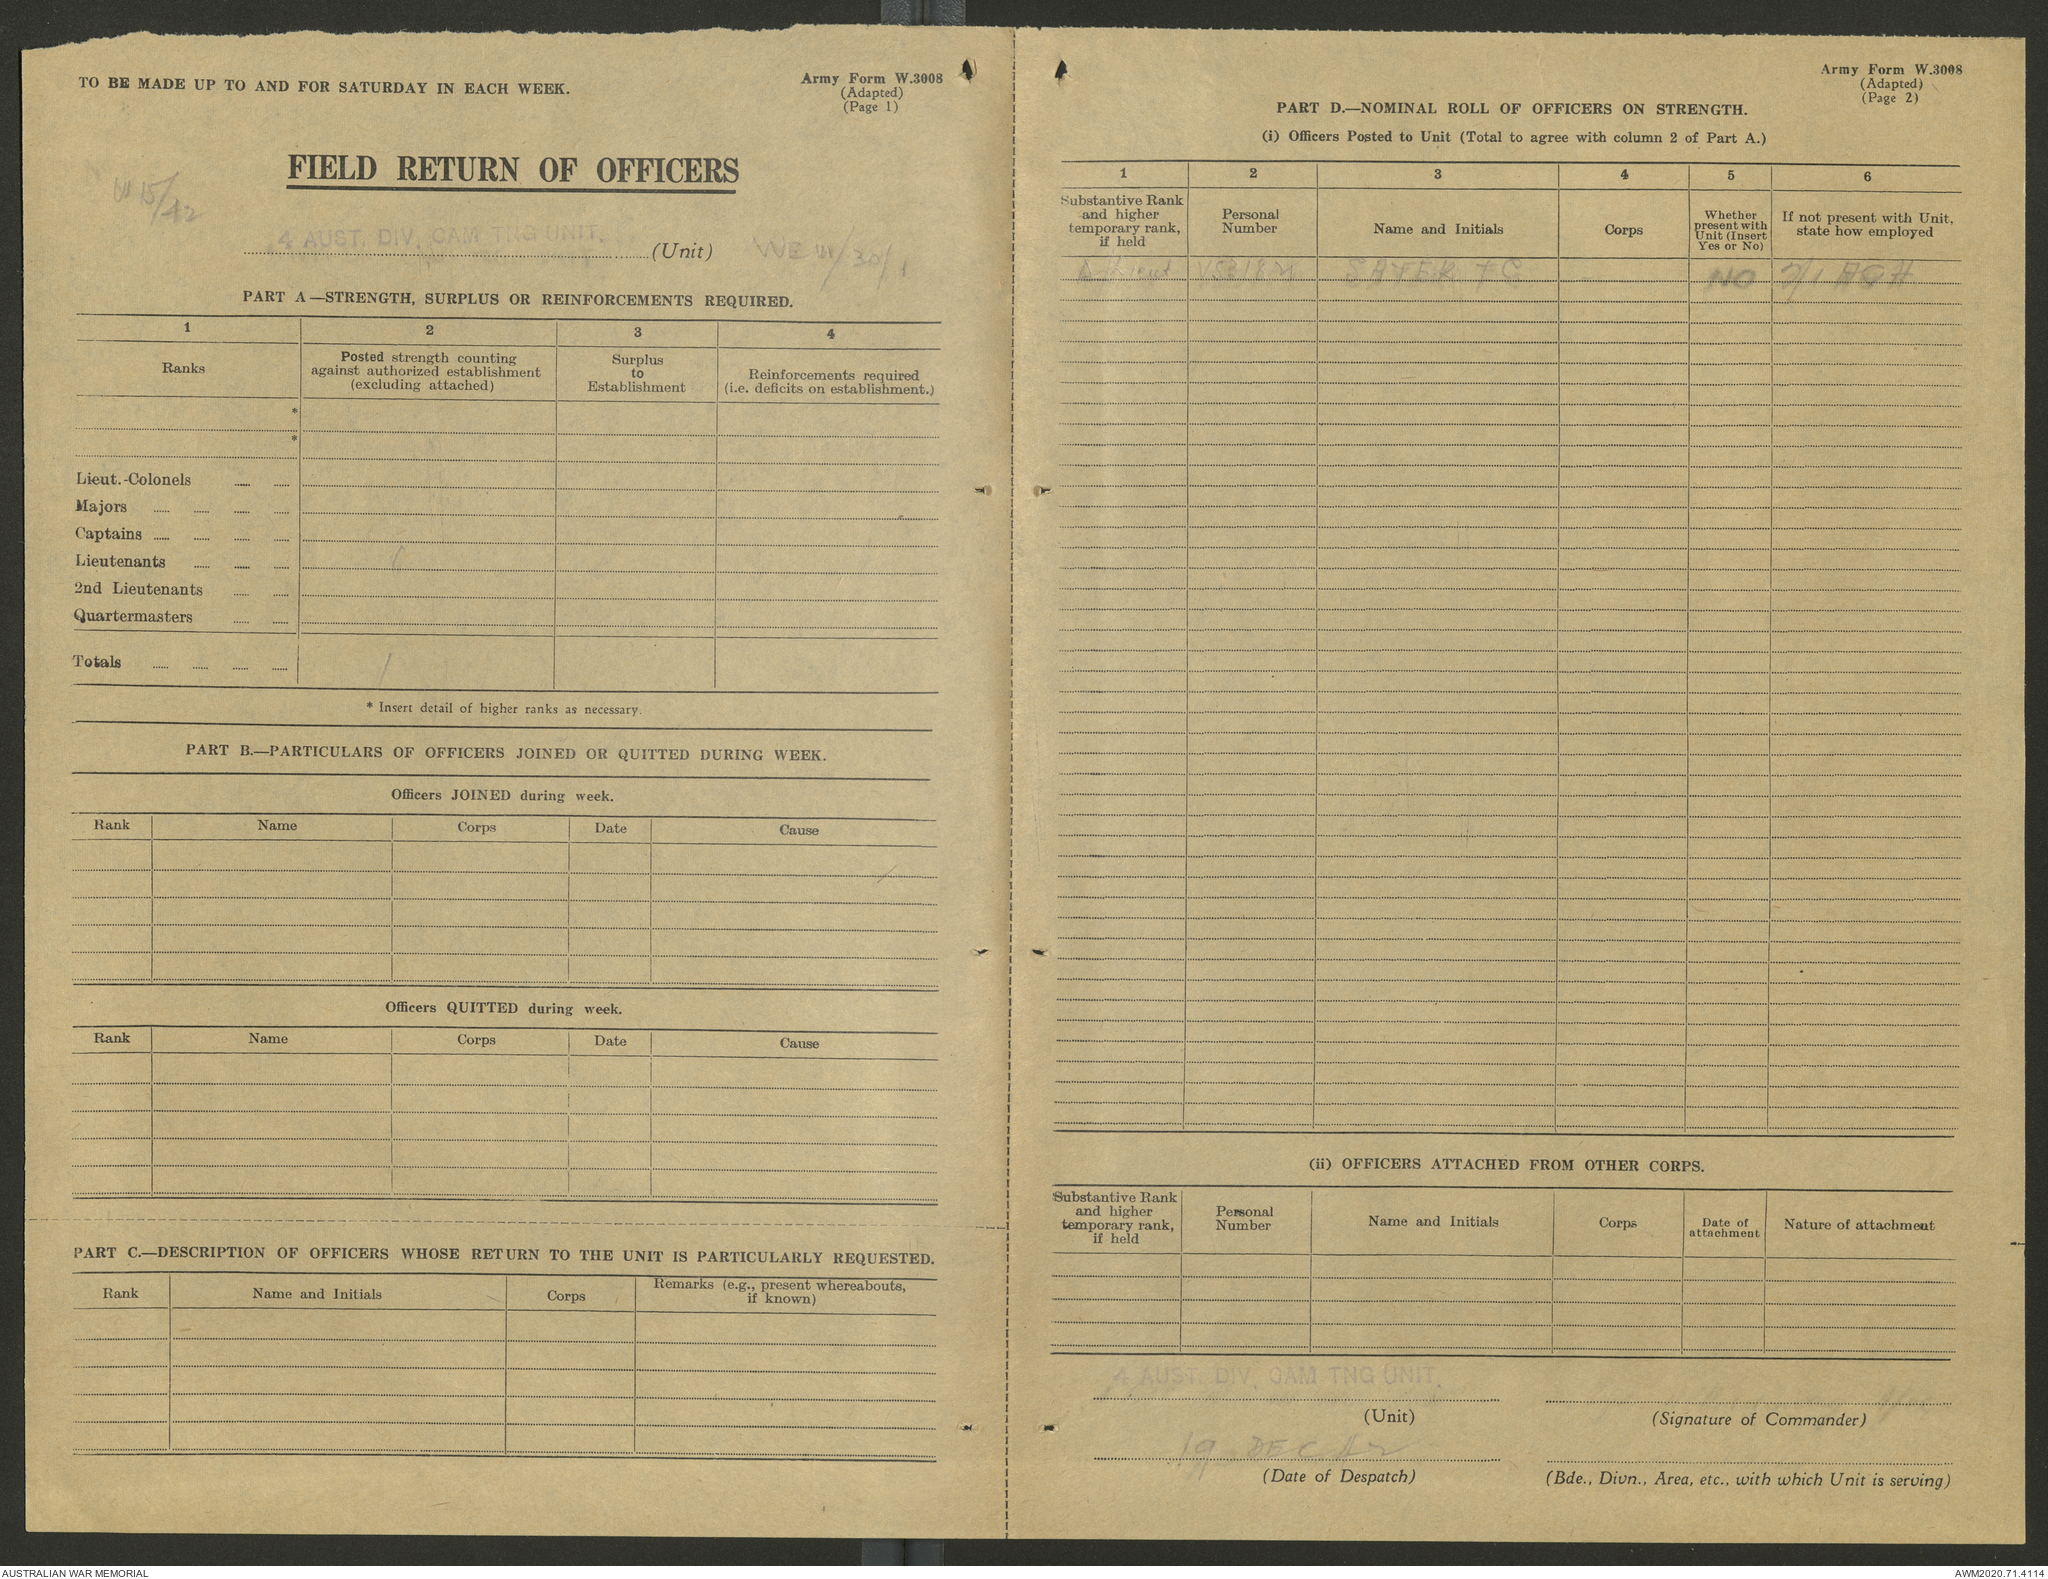 TO BE MADE UP TO AND FOR SATURDAY IN EACH WEEK.
Army Form W.3008
(Adapted)
(Page 1)
FIELD RETURN OF OFFICERS
4 AUST. DIV. CAM TNG UNIT.
(Unit)
WE III/30/1
PART A—STRENGTH, SURPLUS OR REINFORCEMENTS REQUIRED.
1 2 3 4
Ranks
Posted strength counting
against authorized establishment
(excluding attached)
Surplus
to
Establishment
Reinforcements required
(i.e. deficits on establishment.)
*
*
Lieut.-Colonels
Majors
Captains
Lieutenants 1
2nd Lieutenants
Quartermasters
Totals 1
* Insert detail of higher ranks as necessary.
PART B.—PARTICULARS OF OFFICERS JOINED OR QUITTED DURING WEEK.
Officers JOINED during week.
Rank Name Corps Date Cause
Officers QUITTED during week.
Rank Name Corps Date Cause
PART C.—DESCRIPTION OF OFFICERS WHOSE RETURN TO THE UNIT IS PARTICULARLY REQUESTED.
Rank Name and Initials Corps
Remarks (e.g., present whereabouts,
if known)
Army Form W.3008
(Adapted)
(Page 2)
PART D.—NOMINAL ROLL OF OFFICERS ON STRENGTH.
(i) Officers Posted to Unit (Total to agree with column 2 of Part A.)
1 2 3 4 5 6
Substantive Rank
and higher
temporary rank,
if held
Personal
Number
Name and Initials
Corps
Whether
present with
Unit (Insert
Yes or No)
If not present with Unit,
state how employed
Lieut NO 2/1 AGH
(ii) OFFICERS ATTACHED FROM OTHER CORPS.
Substantive Rank
and higher
temporary rank,
if held
Personal
Number
Name and Initials
Corps
Date of
attachment
Nature of attachment
4 AUST. DIV. CAM TNG UNIT.
(Unit)
(Signature of Commander)
19 DEC 42
(Date of Despatch)
(Bde., Divn., Area, etc., with which Unit is serving)
AUSTRALIAN WAR MEMORIAL
AWM2020.71.4114